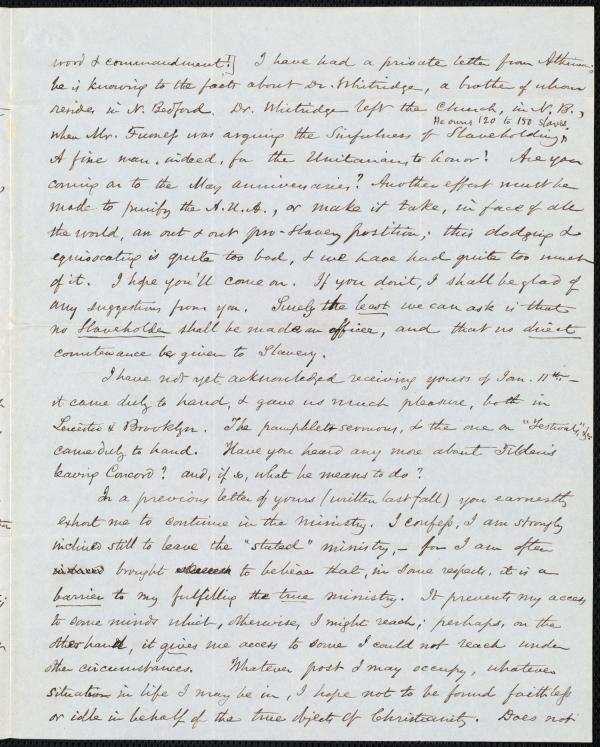 word & commandment!] I have had a private letter from Athenum;
he is knowing to the facts about Dr. Whitridge, a brother of whom
resides in N. Bedford. Dr. Whitridge left the Church, in N. B.,
He owns 120 to 150 slaves.
when Mr. Furness was arguing the Sinfulness of Slaveholding.
A fine man, indeed, for the Unitarians to honor! Are you
coming on to the May anniversaries? Another effort must be
made to purify the A.U.A., or make it take, in face of all
the world, an out & out pro-Slavery position; this dodging &
equivocating is quite too bad, & we have had quite too much
of it. I hope you'll come on. If you don't, I shall be glad of
any suggestions from you. Surely the least we can ask is that
no Slaveholder shall be made an officer, and that no direct
countenance be given to Slavery.
I have not yet acknowledged receiving yours of Jan. 11th. –
it came duly to hand, & gave us much pleasure, both in
Leicester & Brooklyn. The pamphlet sermons, & the one on "Festivals,"
came duly to hand. Have you heard any more about Tilden's
leaving Concord? and, if so, what he means to do?
In a previous letter of yours (written last fall) you earnestly
exhort me to continue in the ministry. I confess, I am strongly
inclined still to leave the "stated" ministry, – for I am often
brought to believe that, in some respects, it is a
barrier to my fulfilling the true ministry. It prevents my access
to some minds which, otherwise, I might reach; perhaps, on the
other hand, it gives me access to some I could not reach under
other circumstances. Whatever post I may occupy, whatever
situation in life I may be in, I hope not to be found faithless
or idle in behalf of the true objects of Christianity. Does not